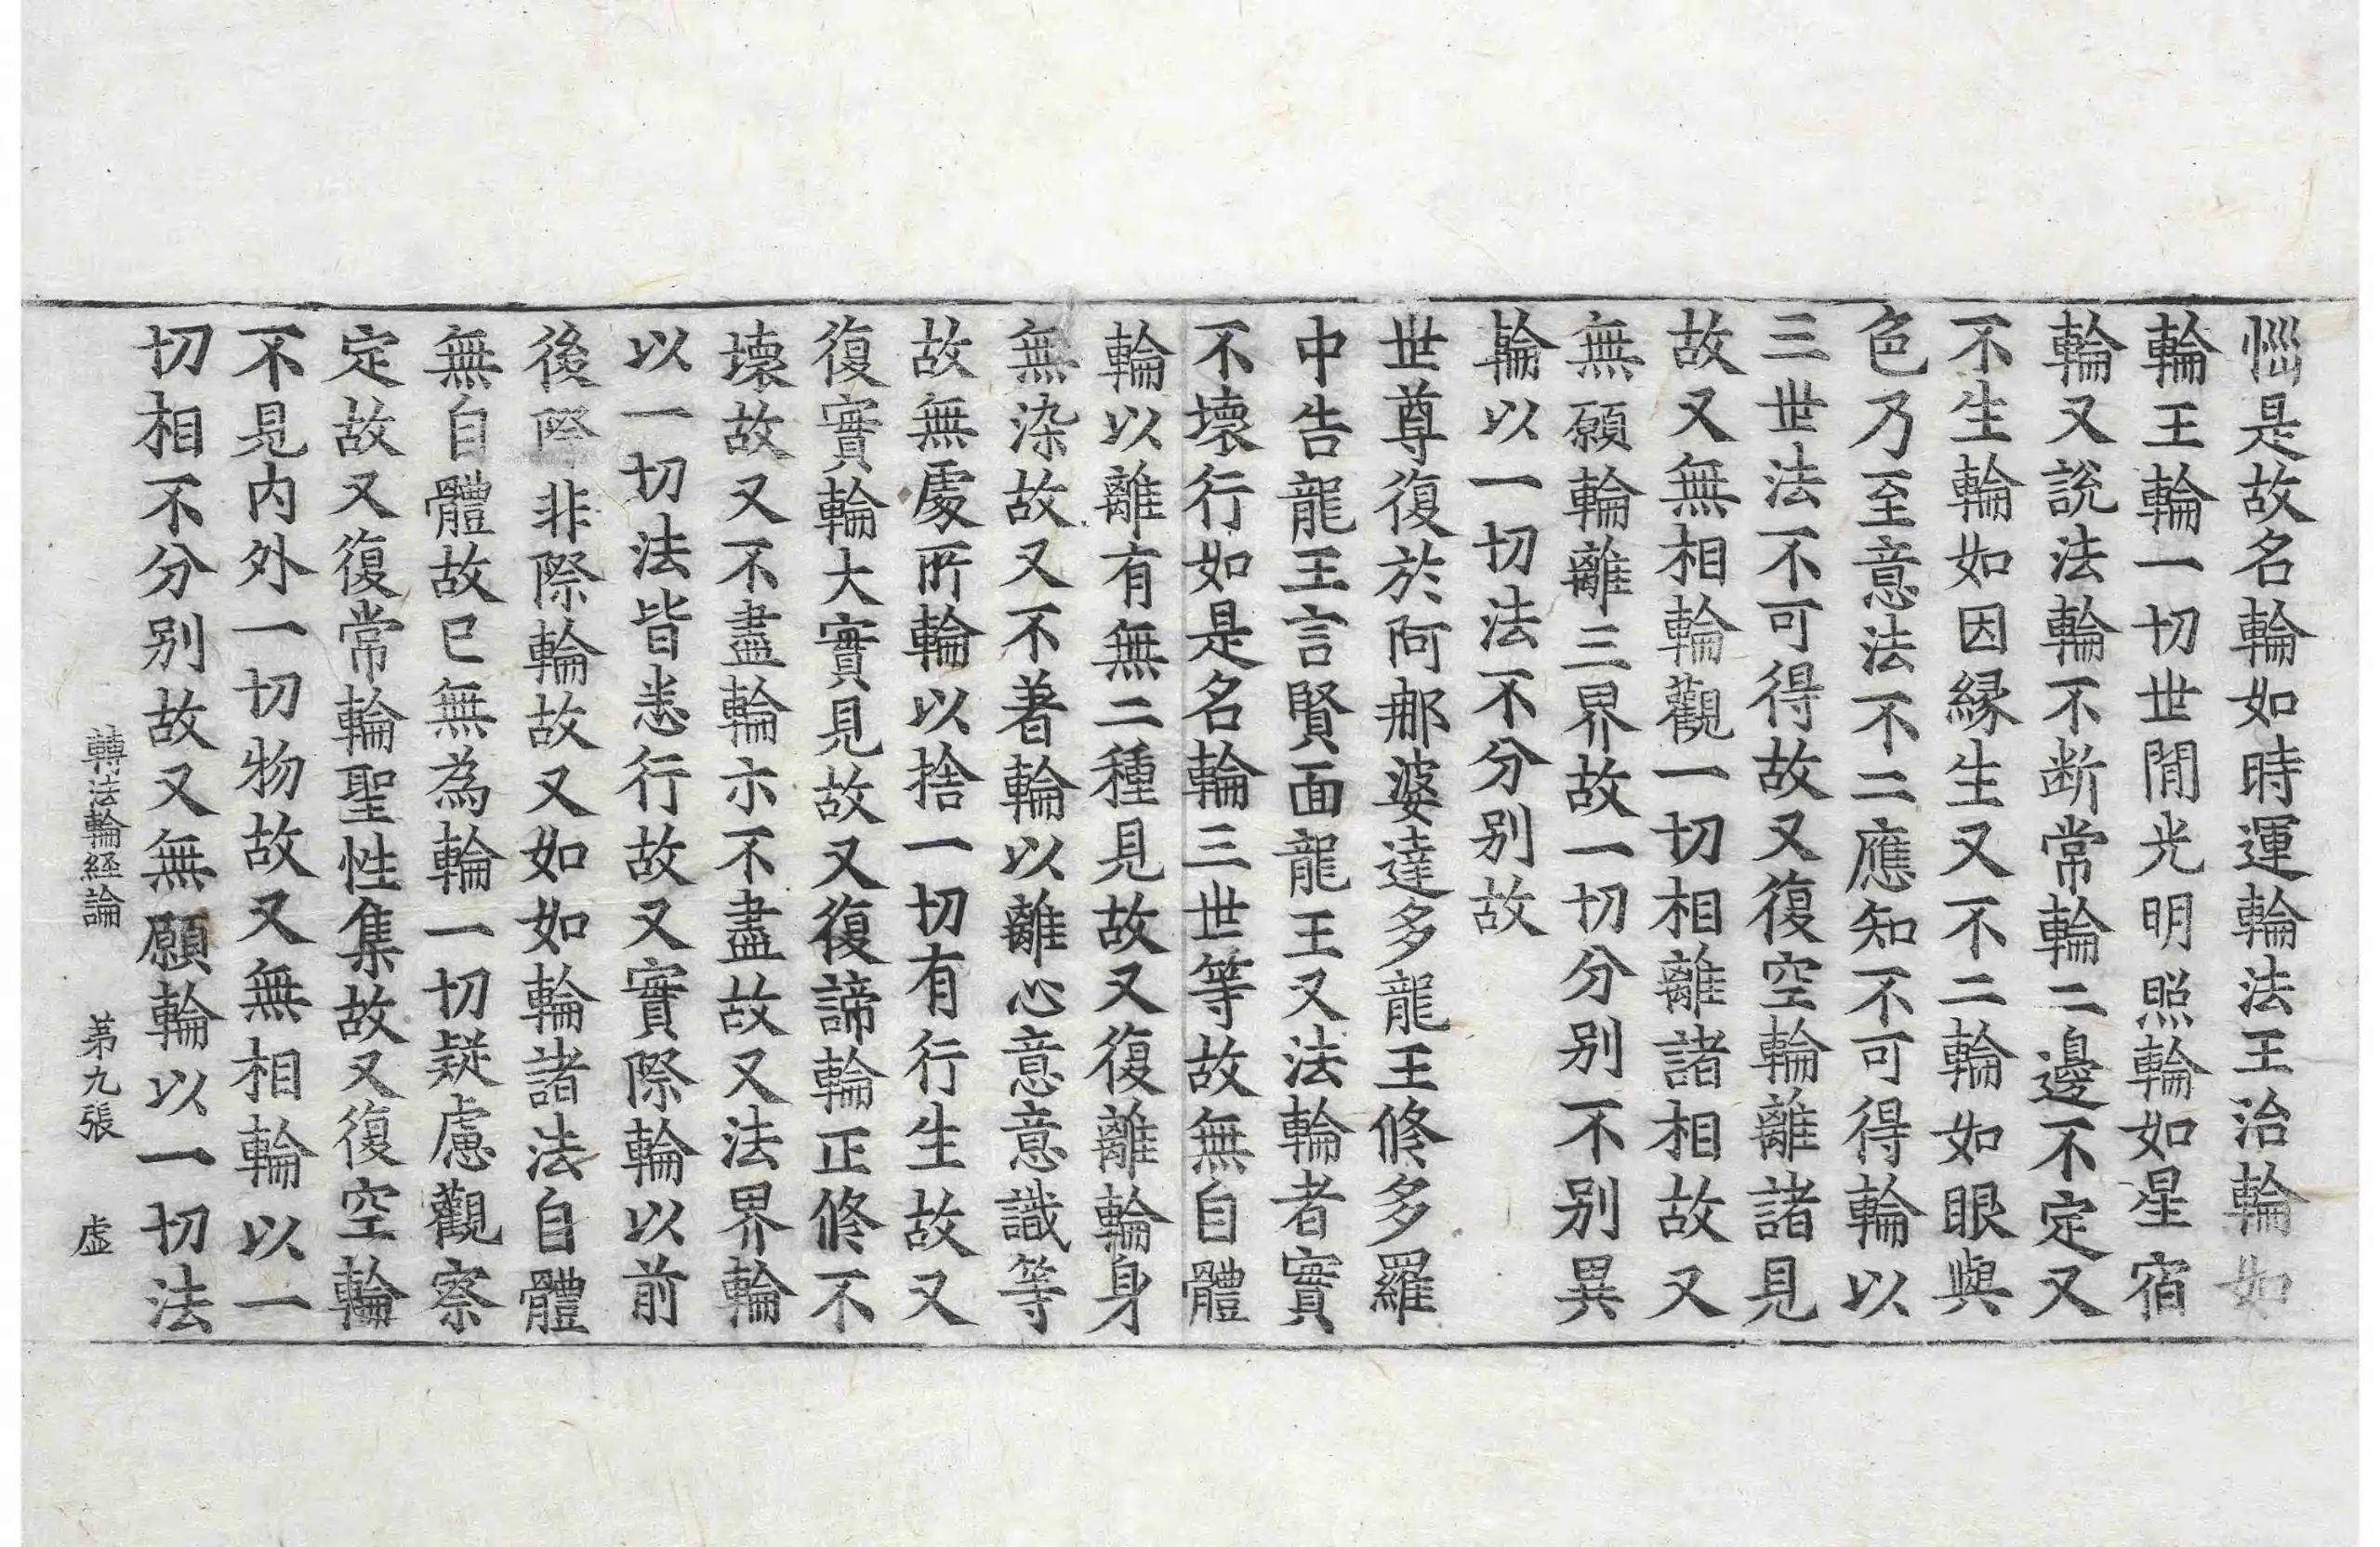 惱是故名輪如時運輪法王治輪如
輪王輪一切世間光明照輪如星宿
輪又說法輪不断常輪二邊不定又
不生輪如因緣生又不二輪如眼與
色乃至意法不二應知不可得輪以
三世法不可得故又復空輪離諸見
故又無相輪觀一切相離諸相故又
無願輪離三界故一切分別不別異
輪以一切法不分別故
世尊復於阿那婆達多龍王修多羅
中告龍王言賢面龍王又法輪者實
不壞行如是名輪三世等故無自體
輪以離有無二種見故又復離輪身
無染故又不著輪以離心意意識等
故無處所輪以捨一切有行生故又
復實輪大實見故又復諦輪正修不
壞故又不盡輪尒不盡故又法界輪
以一切法皆悉行故又實際輪以前
後際非際輪故又如如輪諸法自體
無自體故已無為輪一切疑慮觀察
定故又復常輪聖性集故又復空輪
不見內外一切物故又無相輪以一
切相不分別故又無願輪以一切法
轉法輪經論 苐九張 虛